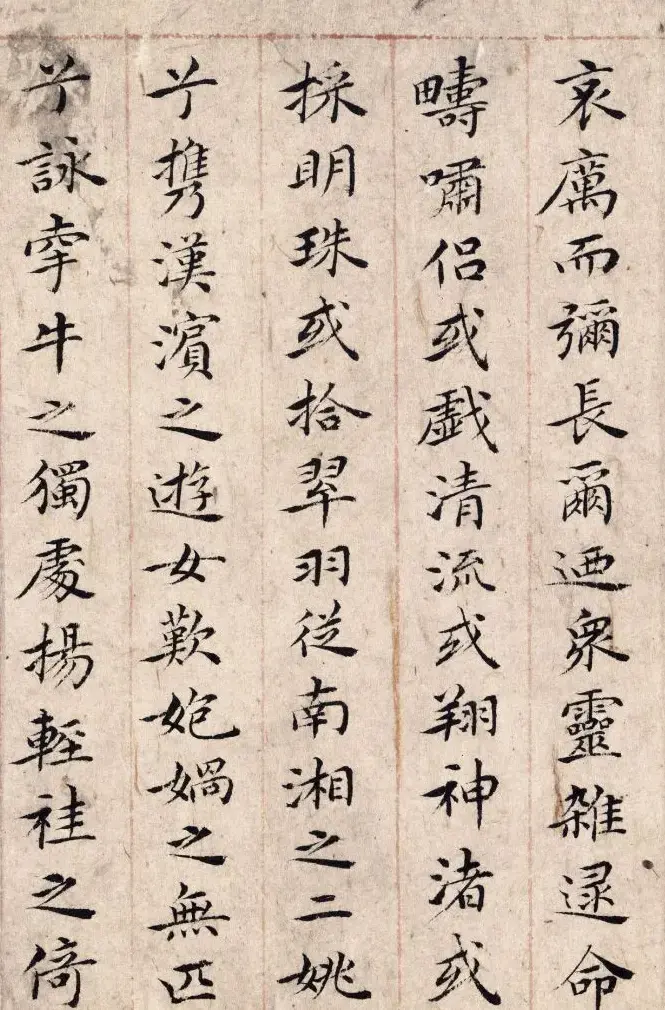 哀厲而彌長爾迺衆靈雜遝命
疇嘯侶或戲清流或翔神渚或
採明珠或拾翠羽從南湘之二姚
兮携漢濱之遊女歎㚿媧之無匹
兮詠牽牛之獨處揚輕袿之倚